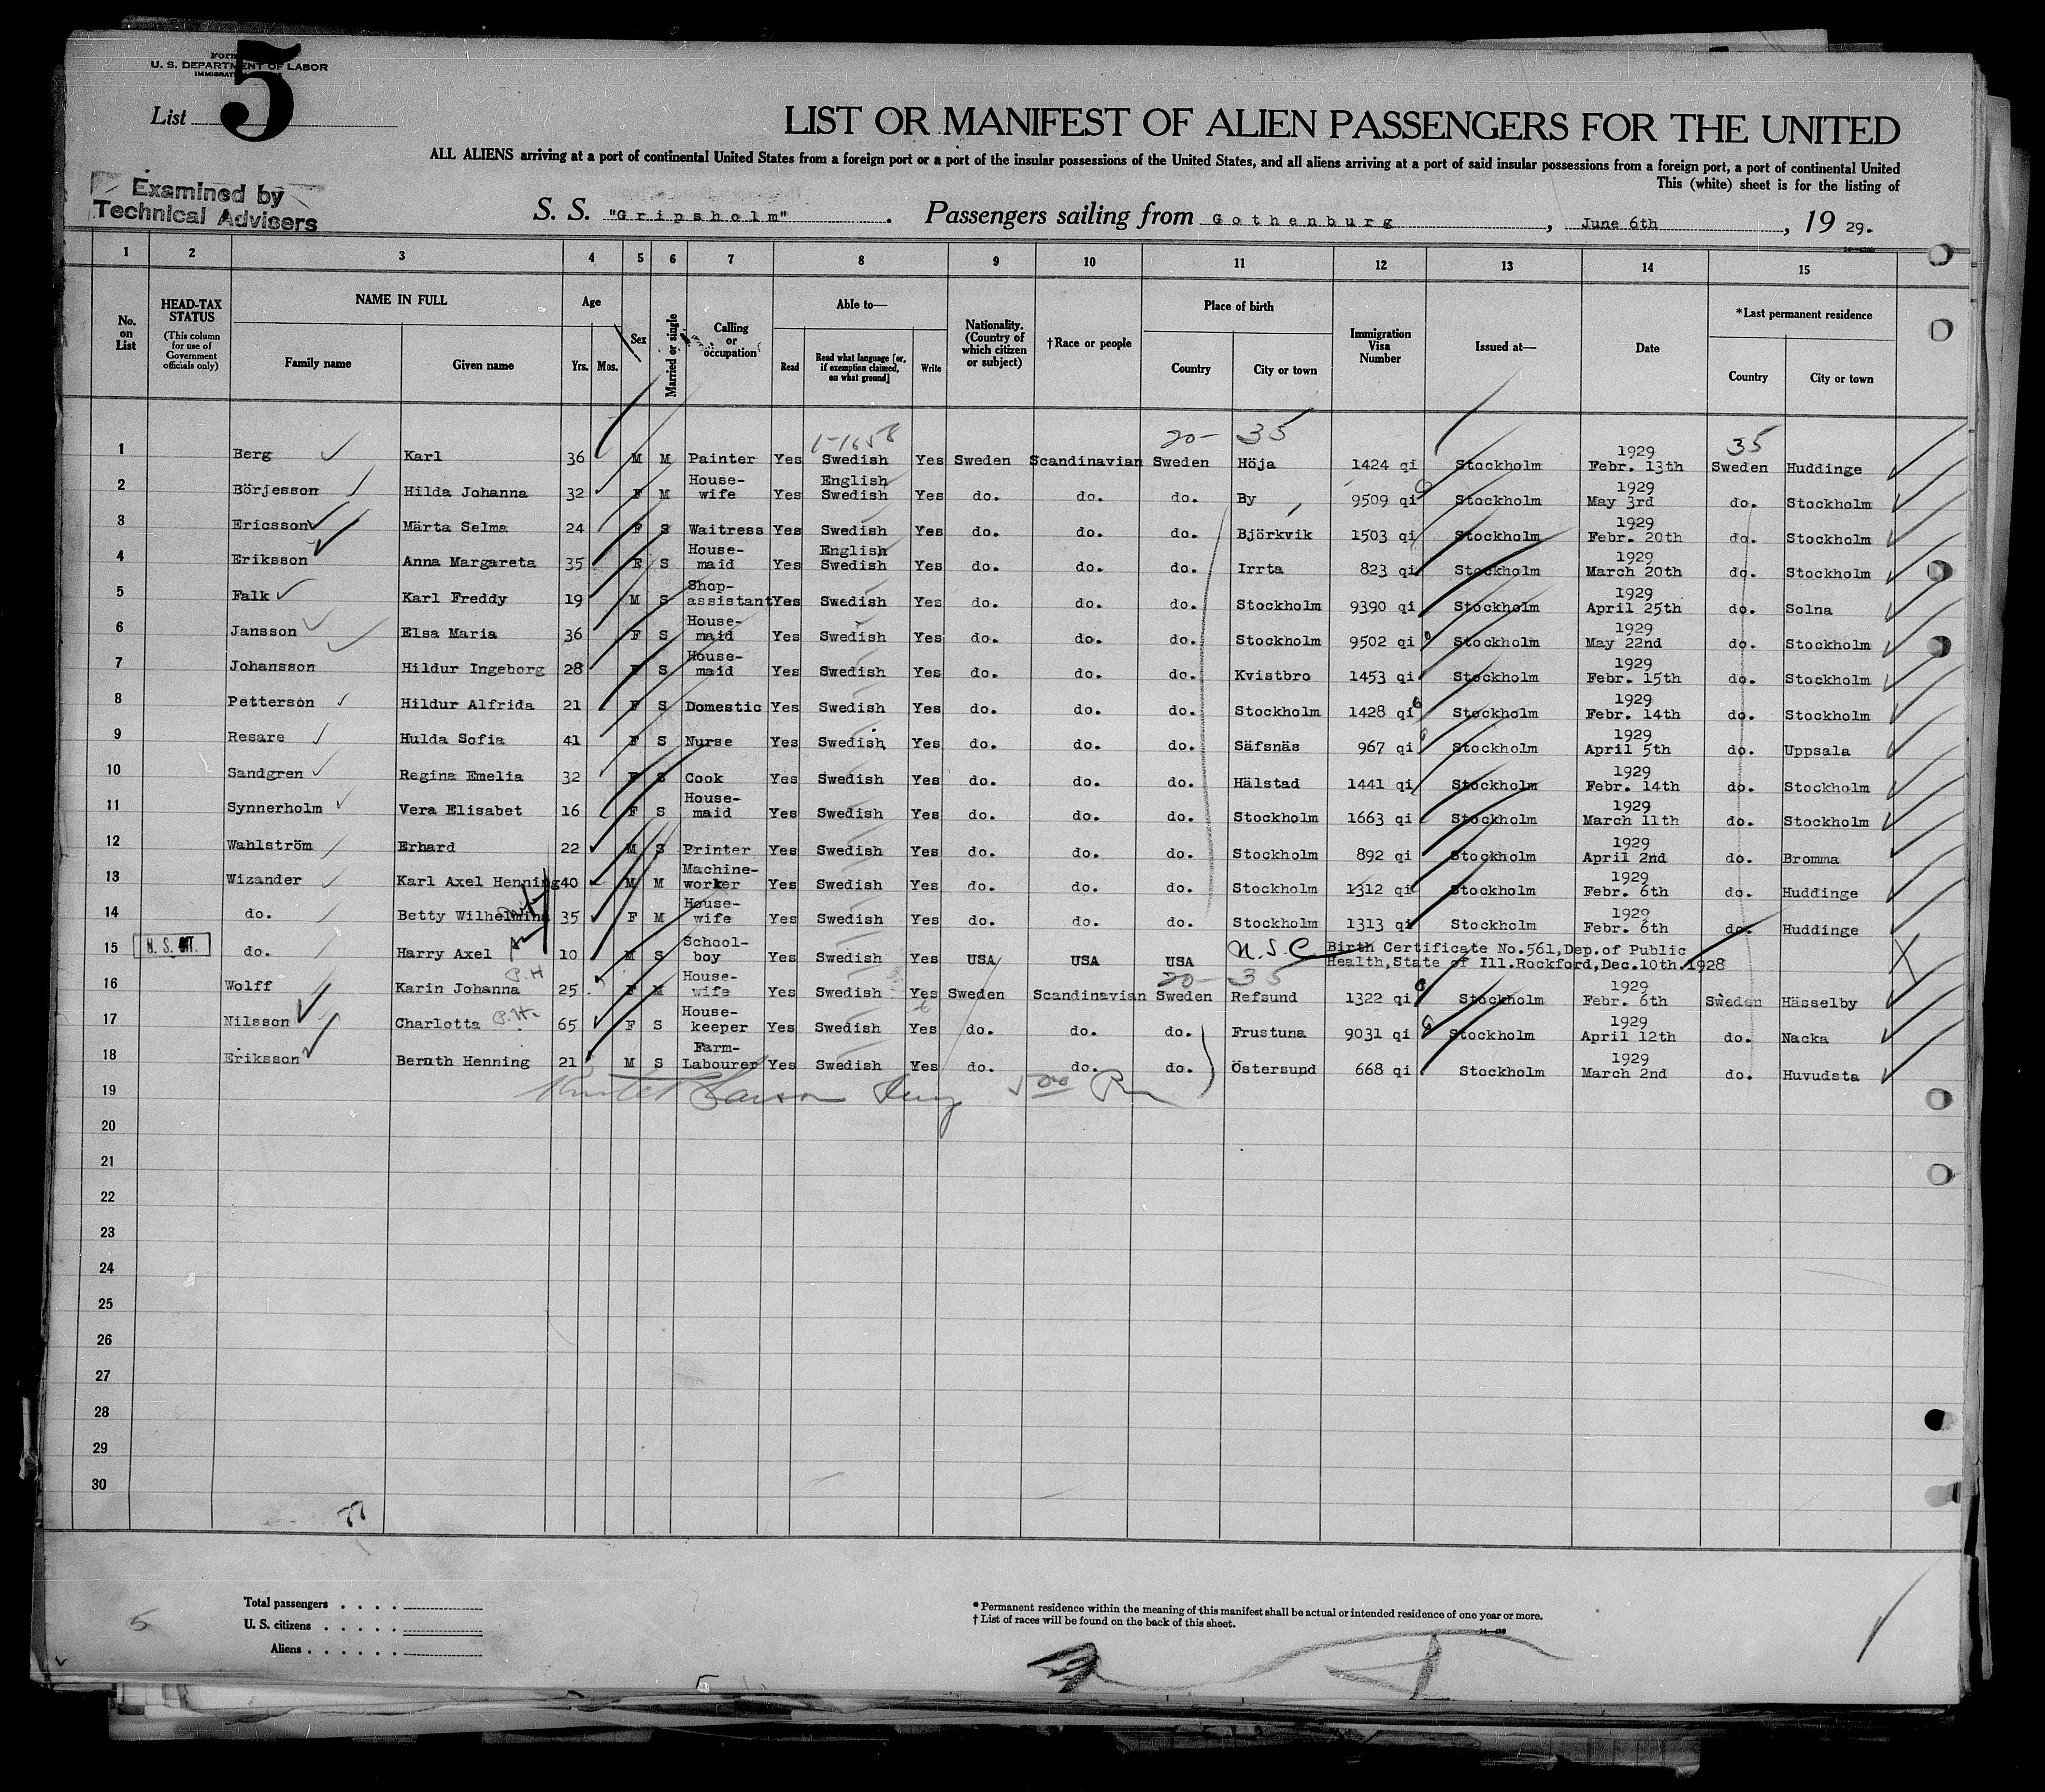 5
Form
U. S. DEPARTMENT OF LABOR
List
LIST OR MANIFEST OF ALIEN PASSENGERS FOR THE UNITED
ALL ALIENS arriving at a port of continental United States from a foreign port or a port of the insular possessions of the United States, and all aliens arriving at a port of said insular possessions from a foreign port, a port of continental United
This (white) sheet is for the listing of
Examined by
Technical Advisers
S. S. "Gripsholm" . Passengers sailing from Gothenburg , June 6th , 19 29.
1 2 3 4 5 6 7 8 9 10 11 12 13 14 15
No. on List
HEAD-TAX STATUS
(This column for use of Government officials only)
NAME IN FULL
Family name Given name
Age
Yrs. Mos.
Sex
Married or single
Calling or occupation
Able to—
Read Read what language [or, if exemption claimed, on what ground] Write
Nationality. (Country of which citizen or subject)
†Race or people
Place of birth
Country City or town
Immigration Visa Number
Issued at—
Date
*Last permanent residence
Country City or town
20- 35 35
1 Berg Karl 36 M M Painter Yes Swedish Yes Sweden Scandinavian Sweden Höja 1424 qi Stockholm 1929 Febr. 13th Sweden Huddinge
2 Börjesson Hilda Johanna 32 F M House-wife Yes English Swedish Yes do. do. do. By 9509 qi Stockholm 1929 May 3rd do. Stockholm
3 Ericsson Märta Selma 24 F S Waitress Yes Swedish Yes do. do. do. Björkvik 1503 qi Stockholm 1929 Febr. 20th do. Stockholm
4 Eriksson Anna Margareta 35 F S House-maid Yes English Swedish Yes do. do. do. Irrta 823 qi Stockholm 1929 March 20th do. Stockholm
5 Falk Karl Freddy 19 M S Shop-assistant Yes Swedish Yes do. do. do. Stockholm 9390 qi Stockholm 1929 April 25th do. Solna
6 Jansson Elsa Maria 36 F S House-maid Yes Swedish Yes do. do. do. Stockholm 9502 qi Stockholm 1929 May 22nd do. Stockholm
7 Johansson Hildur Ingeborg 28 F S House-maid Yes Swedish Yes do. do. do. Kvistbro 1453 qi Stockholm 1929 Febr. 15th do. Stockholm
8 Petterson Hildur Alfrida 21 F S Domestic Yes Swedish Yes do. do. do. Stockholm 1428 qi Stockholm 1929 Febr. 14th do. Stockholm
9 Resare Hulda Sofia 41 F S Nurse Yes Swedish Yes do. do. do. Säfsnäs 967 qi Stockholm 1929 April 5th do. Uppsala
10 Sandgren Regina Emelia 32 F S Cook Yes Swedish Yes do. do. do. Hälstad 1441 qi Stockholm 1929 Febr. 14th do. Stockholm
11 Synnerholm Vera Elisabet 16 F S House-maid Yes Swedish Yes do. do. do. Stockholm 1663 qi Stockholm 1929 March 11th do. Stockholm
12 Wahlström Erhard 22 M S Printer Yes Swedish Yes do. do. do. Stockholm 892 qi Stockholm 1929 April 2nd do. Bromma
13 Wizander Karl Axel Henning 40 M M Machine-worker Yes Swedish Yes do. do. do. Stockholm 1312 qi Stockholm 1929 Febr. 6th do. Huddinge
14 do. Betty Wilhelmina 35 F M House-wife Yes Swedish Yes do. do. do. Stockholm 1313 qi Stockholm 1929 Febr. 6th do. Huddinge
15 do. Harry Axel 10 M S School-boy Yes Swedish Yes USA USA USA U.S.C. Birth Certificate No.561,Dep.of Public Health,State of Ill.Rockford,Dec.10th.1928
20- 35
16 Wolff Karin Johanna P.H 25 F M House-wife Yes Swedish Yes Sweden Scandinavian Sweden Refsund 1322 qi Stockholm 1929 Febr. 6th Sweden Hässelby
17 Nilsson Charlotta P.H. 65 F S House-keeper Yes Swedish Yes do. do. do. Frustuna 9031 qi Stockholm 1929 April 12th do. Nacka
18 Eriksson Bernth Henning 21 M S Farm-Labourer Yes Swedish Yes do. do. do. Östersund 668 qi Stockholm 1929 March 2nd do. Huvudsta
19
20
21
22
23
24
25
26
27
28
29
30
77
Total passengers . . . .
U. S. citizens . . . . .
Aliens . . . . . .
5
* Permanent residence within the meaning of this manifest shall be actual or intended residence of one year or more.
† List of races will be found on the back of this sheet.